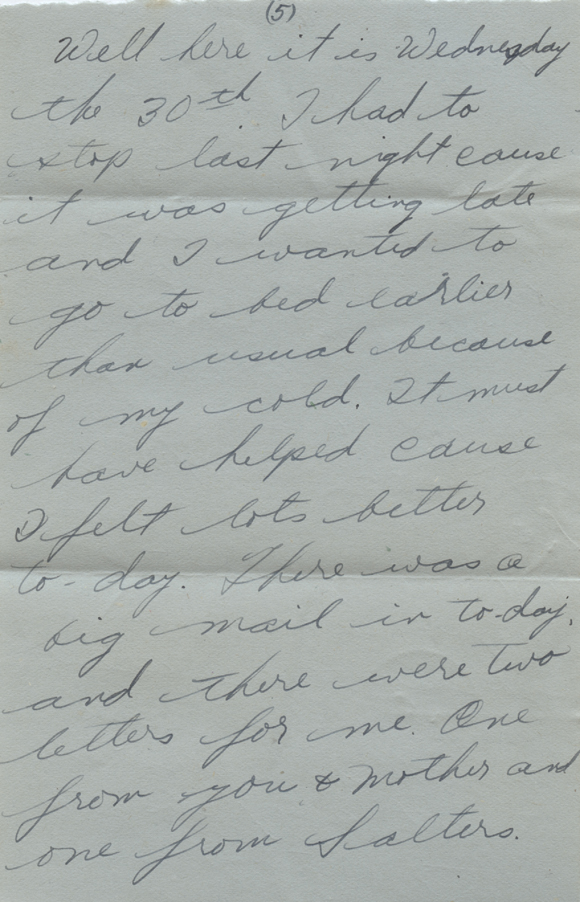 (5)
Well here it is Wednesday
the 30th I had to
stop last night cause
it was getting late
and I wanted to
go to bed earlier
than usual because
of my cold. It must
have helped cause
I felt lots better
to-day. There was a
big mail in to-day,
and there were two
letters for me. One
from you & Mother and
one from Salters.